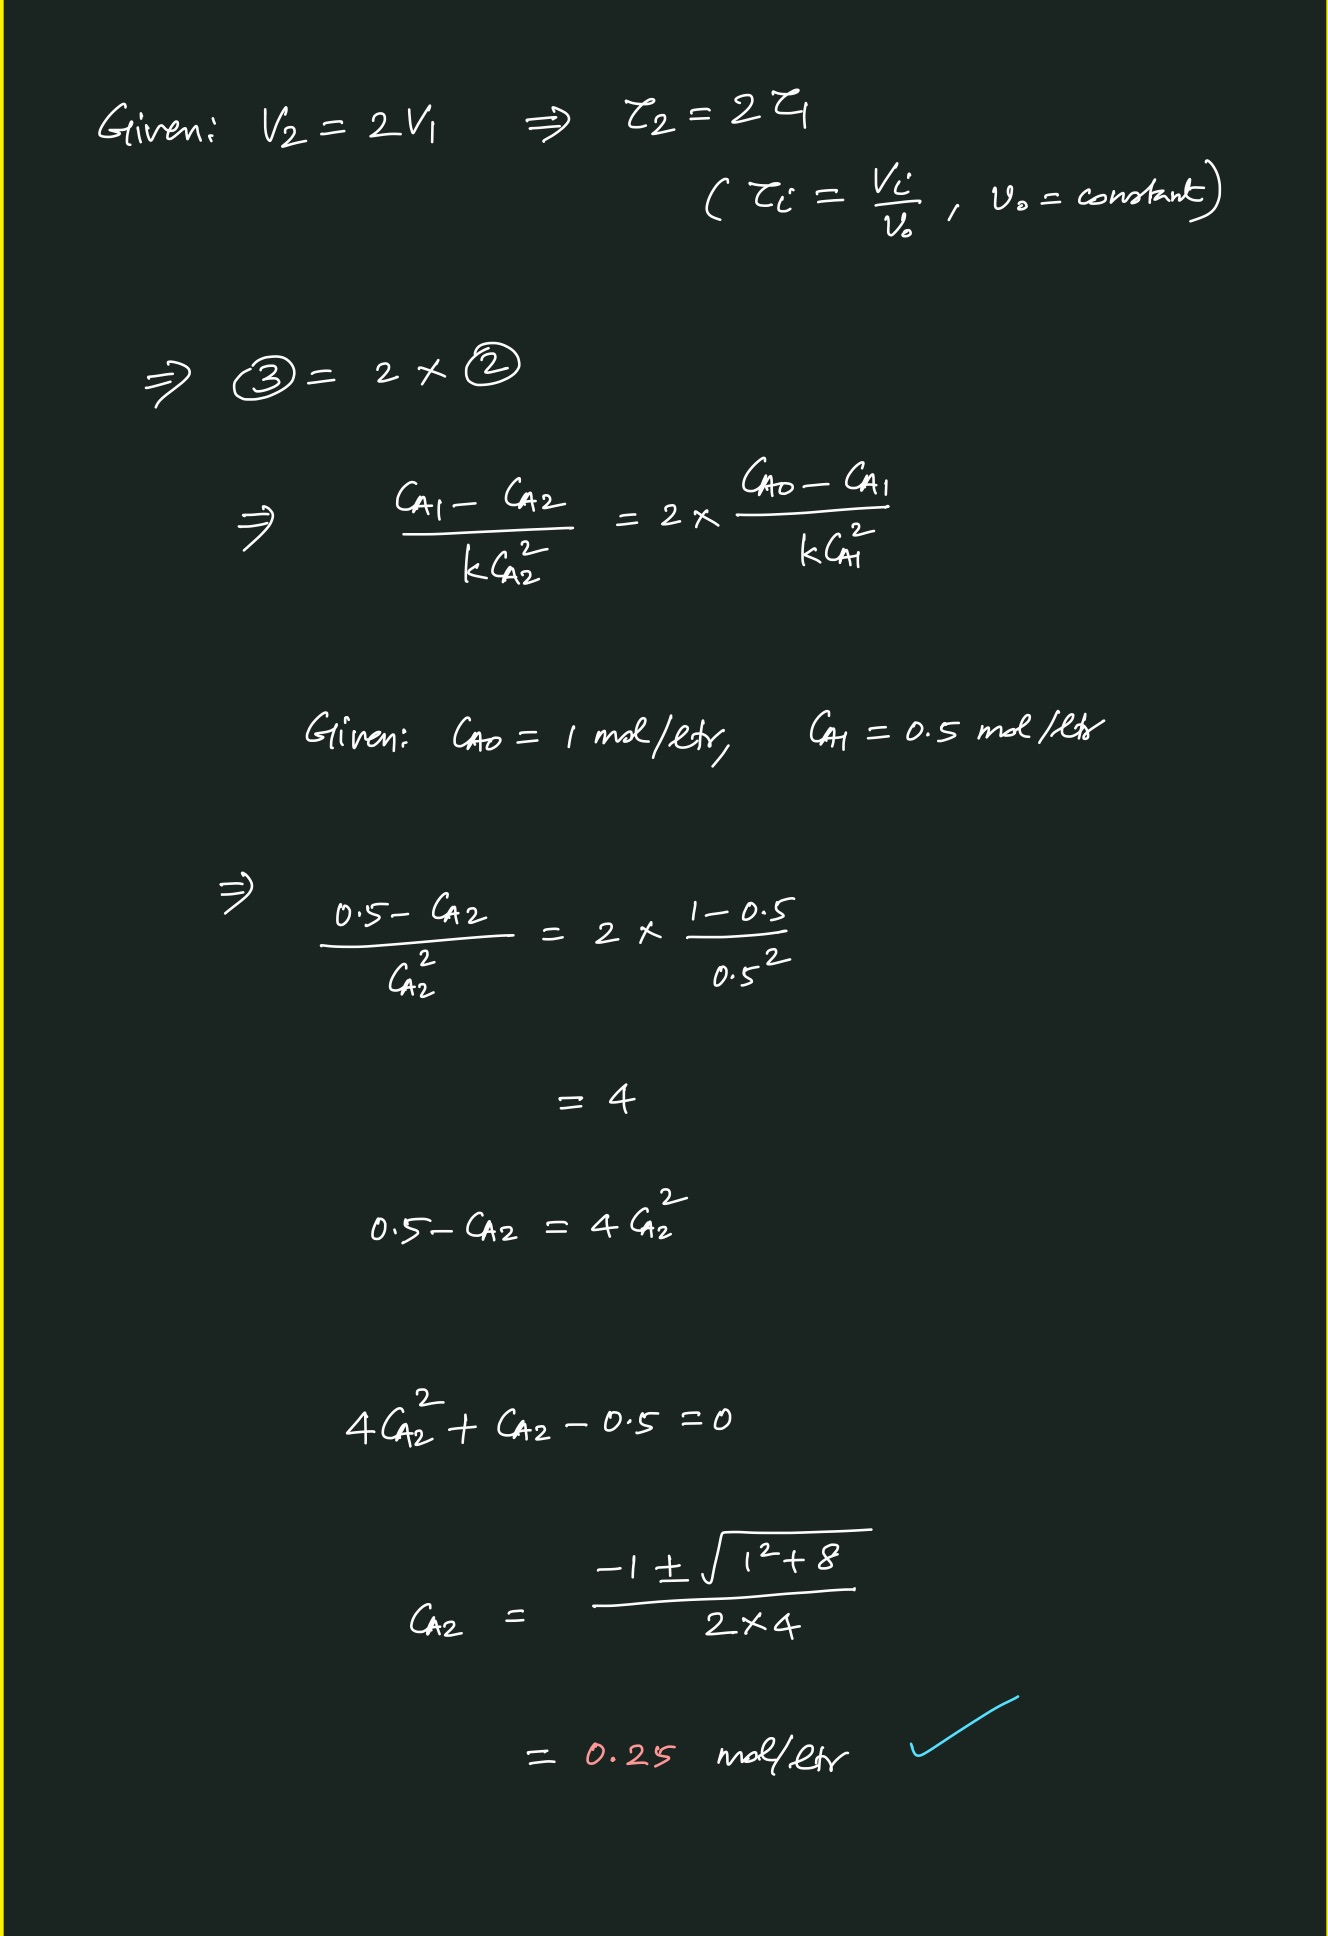 Given: V₂ = 2V₁ ⇒ τ₂ = 2τ₁
(τᵢ = Vᵢ/v₀, v₀ = constant)
⇒ ③ = 2 × ②
⇒ (C_A1 − C_A2)/(k C_A2²) = 2 × (C_A0 − C_A1)/(k C_A1²)
Given: C_A0 = 1 mol/ltr, C_A1 = 0.5 mol/ltr
⇒ (0.5 − C_A2)/(C_A2²) = 2 × (1 − 0.5)/(0.5²)
= 4
0.5 − C_A2 = 4 C_A2²
4 C_A2² + C_A2 − 0.5 = 0
C_A2 = (−1 ± √(1² + 8))/(2 × 4)
= 0.25 mol/ltr ✓